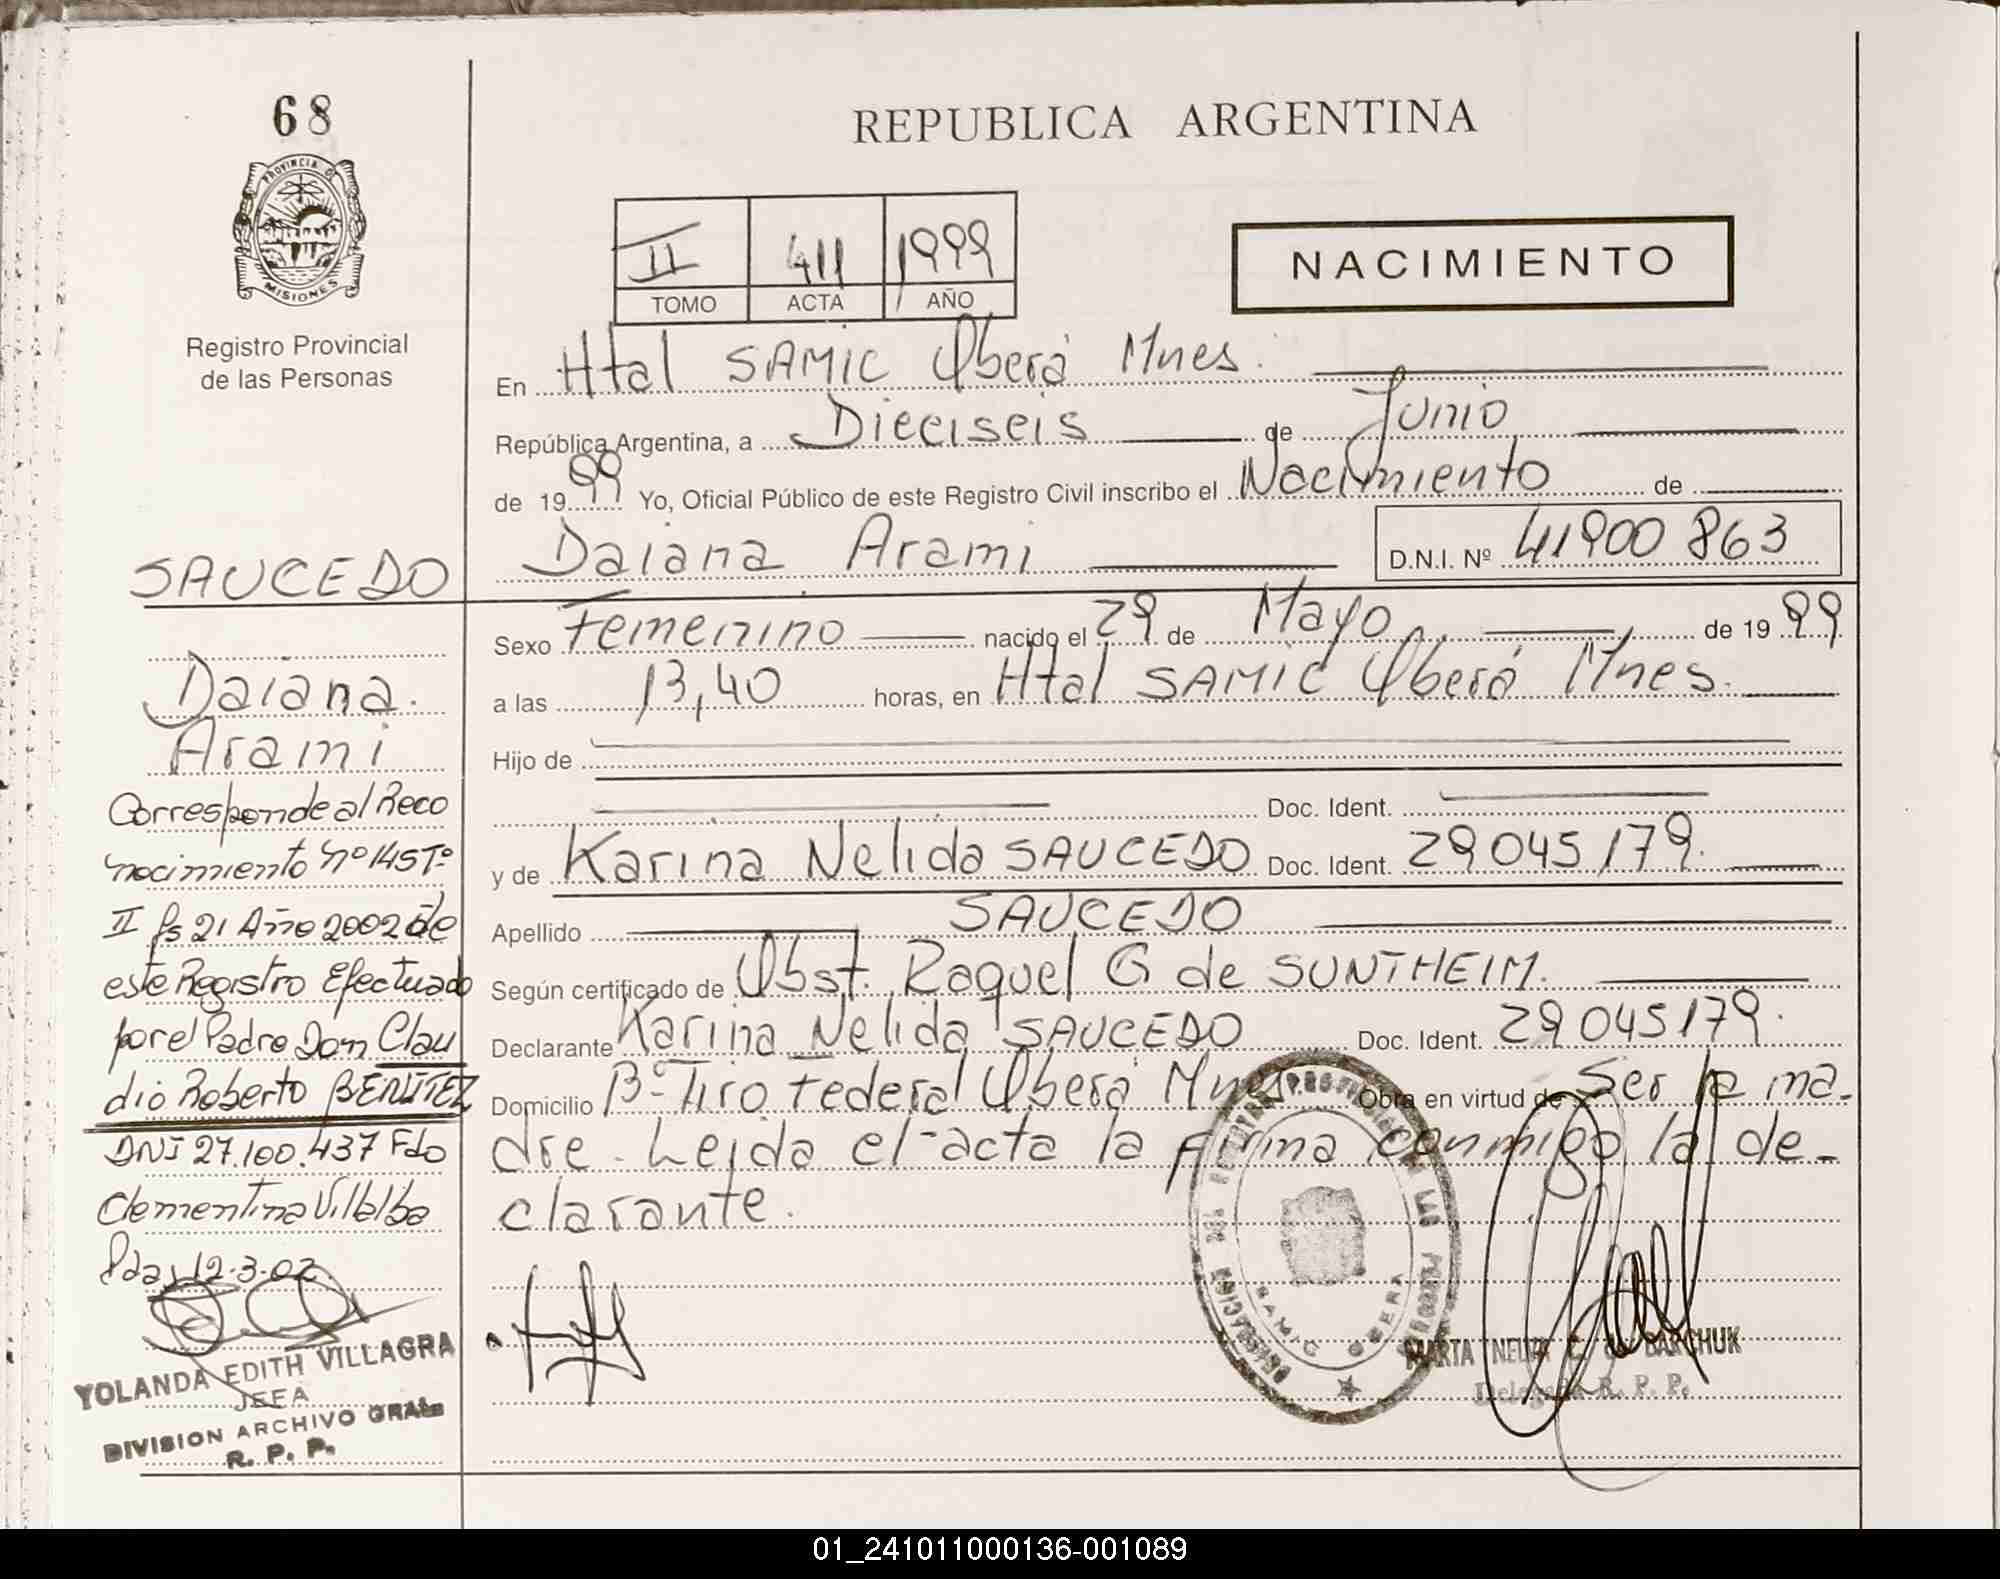 68
PROVINCIA D
MISIONES
Registro Provincial
de las Personas
REPUBLICA ARGENTINA
II 411 1999
TOMO ACTA AÑO
NACIMIENTO
En Htal SAMIC Oberá Mnes.
República Argentina, a Dieciseis de Junio
de 1999 Yo, Oficial Público de este Registro Civil inscribo el Nacimiento de
Daiana Arami D.N.I. Nº 41900863
Sexo Femenino nacido el 29 de Mayo de 1999
a las 13,40 horas, en Htal SAMIC Oberá Mnes.
Hijo de
Doc. Ident.
y de Karina Nelida SAUCEDO Doc. Ident. 29045179.
Apellido SAUCEDO
Según certificado de Obst. Raquel G de SUNTHEIM.
Declarante Karina Nelida SAUCEDO Doc. Ident. 29045179.
Domicilio Bº Tiro Federal Oberá Mnes Obra en virtud de Ser la ma-
dre. Leida el acta la firma conmigo la de-
clarante.
SAUCEDO
Daiana
Arami
Corresponde al Reco
nocimiento Nº 145 Tº
II fs 21 Año 2002 de
este Registro Efectuado
por el Padre Don Clau
dio Roberto BENITEZ
DNI 27.100.437 Fdo
Clementina Villalba
Pdas 12-3-02.
YOLANDA EDITH VILLAGRA
JEFA
DIVISION ARCHIVO GRAL.
R. P. P.
SAMIC OBERA
MARTA NELIDA C. BARCHUK
Delegada R. P. P.
01_241011000136-001089